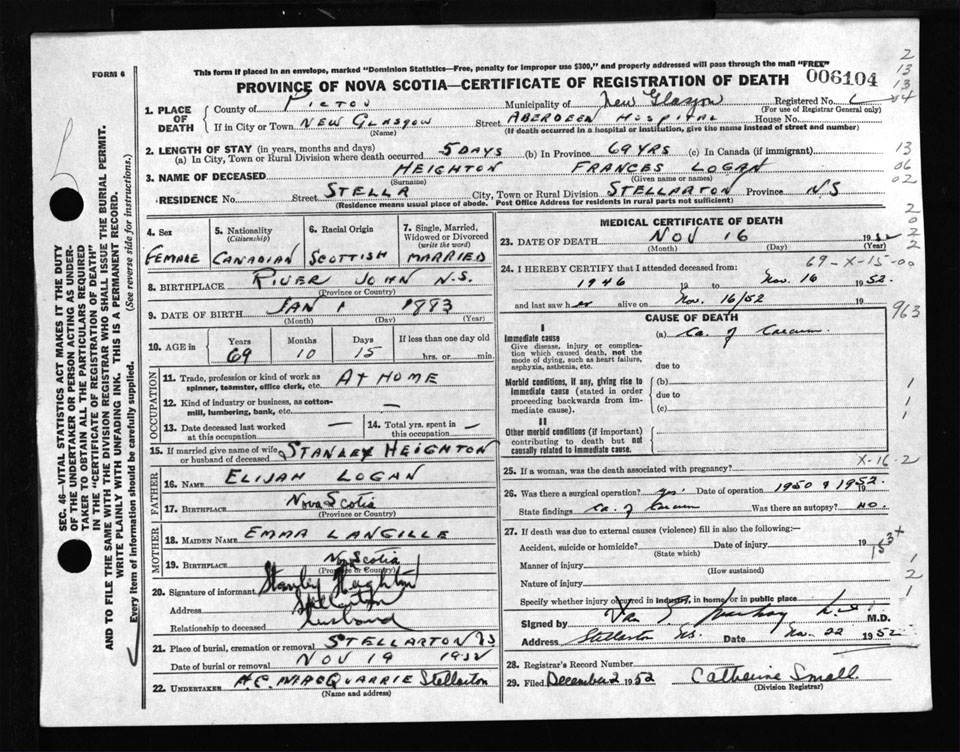 FORM 6
This form if placed in an envelope, marked "Dominion Statistics—Free, penalty for improper use $300," and properly addressed will pass through the mail "FREE"
PROVINCE OF NOVA SCOTIA—CERTIFICATE OF REGISTRATION OF DEATH 006104
1. PLACE OF DEATH
County of PICTOU Municipality of New Glasgow Registered No.
(For use of Registrar General only)
If in City or Town NEW GLASGOW Street ABERDEEN HOSPITAL House No.
(Name) (If death occurred in a hospital or institution, give the name instead of street and number)
2. LENGTH OF STAY (in years, months and days)
(a) In City, Town or Rural Division where death occurred 5 DAYS (b) In Province 69 YRS (c) In Canada (if immigrant)
3. NAME OF DECEASED HEIGHTON FRANCES LOGAN
(Surname) (Given name or names)
RESIDENCE No. Street STELLA City, Town or Rural Division STELLARTON Province N S
(Residence means usual place of abode. Post Office Address for residents in rural parts not sufficient)
4. Sex
FEMALE
5. Nationality
(Citizenship)
CANADIAN
6. Racial Origin
SCOTTISH
7. Single, Married, Widowed or Divorced
(write the word)
MARRIED
8. BIRTHPLACE RIVER JOHN N.S.
(Province or Country)
9. DATE OF BIRTH JAN 1 1883
(Month) (Day) (Year)
10. AGE in
Years Months Days If less than one day old
69 10 15 hrs. or min.
OCCUPATION
11. Trade, profession or kind of work as AT HOME
spinner, teamster, office clerk, etc.
12. Kind of industry or business, as cotton-
mill, lumbering, bank, etc. —
13. Date deceased last worked — 14. Total yrs. spent in —
at this occupation this occupation
15. If married give name of wife STANLEY HEIGHTON
or husband of deceased
FATHER
16. NAME ELIJAH LOGAN
17. BIRTHPLACE Nova Scotia
(Province or Country)
MOTHER
18. MAIDEN NAME EMMA LANGILLE
19. BIRTHPLACE N. Scotia
(Province or Country)
20. Signature of informant Stanley Heighton
Address Stellarton
Relationship to deceased Husband
21. Place of burial, cremation or removal STELLARTON N S
Date of burial or removal NOV 19 1952
22. UNDERTAKER A. C. MACQUARRIE Stellarton
(Name and address)
MEDICAL CERTIFICATE OF DEATH
23. DATE OF DEATH NOV 16 1952
(Month) (Day) (Year)
69-X-15-00
24. I HEREBY CERTIFY that I attended deceased from:
1946 19 to Nov. 16 1952.
and last saw her alive on Nov. 16/52 19
CAUSE OF DEATH
963
I
Immediate cause
Give disease, injury or complication which caused death, not the mode of dying, such as heart failure, asphyxia, asthenia, etc.
(a) Ca. of Caecum.
due to
Morbid conditions, if any, giving rise to immediate cause (stated in order proceeding backwards from immediate cause).
(b)
due to
(c)
II
Other morbid conditions (if important) contributing to death but not causally related to immediate cause.
25. If a woman, was the death associated with pregnancy?
X-16-2
26. Was there a surgical operation? yes. Date of operation 1950 & 1952. 19
State findings Ca. of Caecum Was there an autopsy? no.
27. If death was due to external causes (violence) fill in also the following:—
Accident, suicide or homicide? Date of injury 19
(State which)
Manner of injury
(How sustained)
Nature of injury
Specify whether injury occurred in industry, in home, or in public place
Signed by M.D.
Address Stellarton N.S. Date Nov. 22 1952.
28. Registrar's Record Number
29. Filed December 2 1952 Catherine Small
(Division Registrar)
SEC. 46—VITAL STATISTICS ACT MAKES IT THE DUTY
OF THE UNDERTAKER OR PERSON ACTING AS UNDER-
TAKER TO OBTAIN ALL THE PARTICULARS REQUIRED
IN THE "CERTIFICATE OF REGISTRATION OF DEATH"
AND TO FILE THE SAME WITH THE DIVISION REGISTRAR WHO SHALL ISSUE THE BURIAL PERMIT.
WRITE PLAINLY WITH UNFADING INK. THIS IS A PERMANENT RECORD.
Every item of information should be carefully supplied. (See reverse side for instructions.)